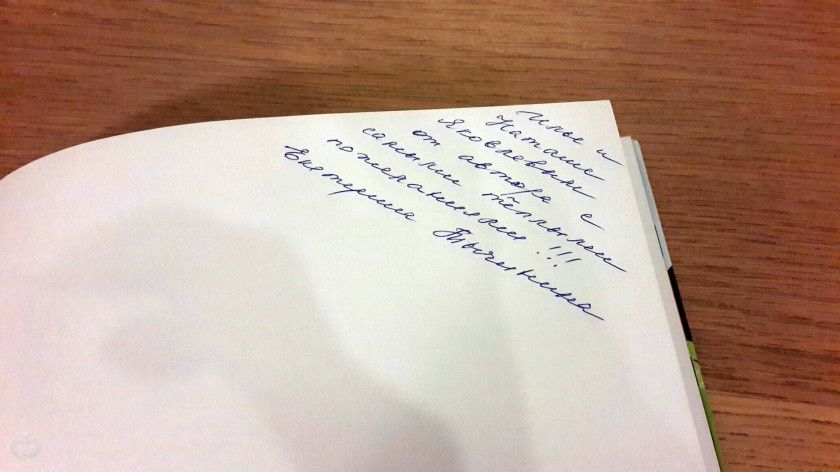 Илье и
Наташе
Яковлевым
от автора с
самыми тёплыми
пожеланиями!!!
Екатерина